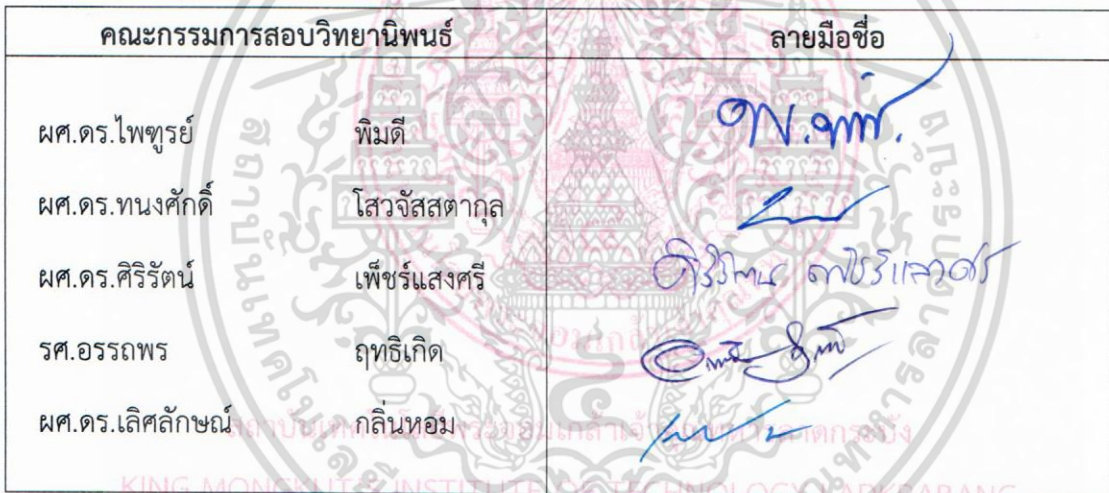 คณะกรรมการสอบวิทยานิพนธ์ ลายมือชื่อ
ผศ.ดร.ไพฑูรย์ พิมดี
ผศ.ดร.ทนงศักดิ์ โสวจัสสตากุล
ผศ.ดร.ศิริรัตน์ เพ็ชร์แสงศรี
รศ.อรรถพร ฤทธิเกิด
ผศ.ดร.เลิศลักษณ์ กลิ่นหอม
สถาบันเทคโนโลยีพระจอมเกล้าเจ้าคุณทหารลาดกระบัง
KING MONGKUT'S INSTITUTE OF TECHNOLOGY LADKRABANG